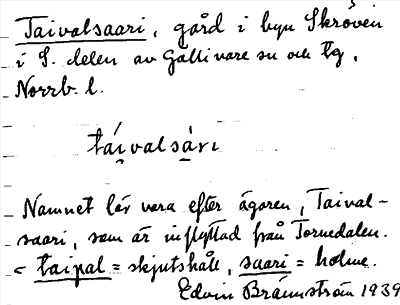 Taivalsaari, gård i byn Skröven
i S. delen av Gällivare sn och tg,
Norrb. l.
táivalsàrı
Namnet lär vara efter ägaren, Taival-
saari, som är inflyttad från Tornedalen.
< taipal = skjutshåll, saari = holme.
Edvin Brännström 1939